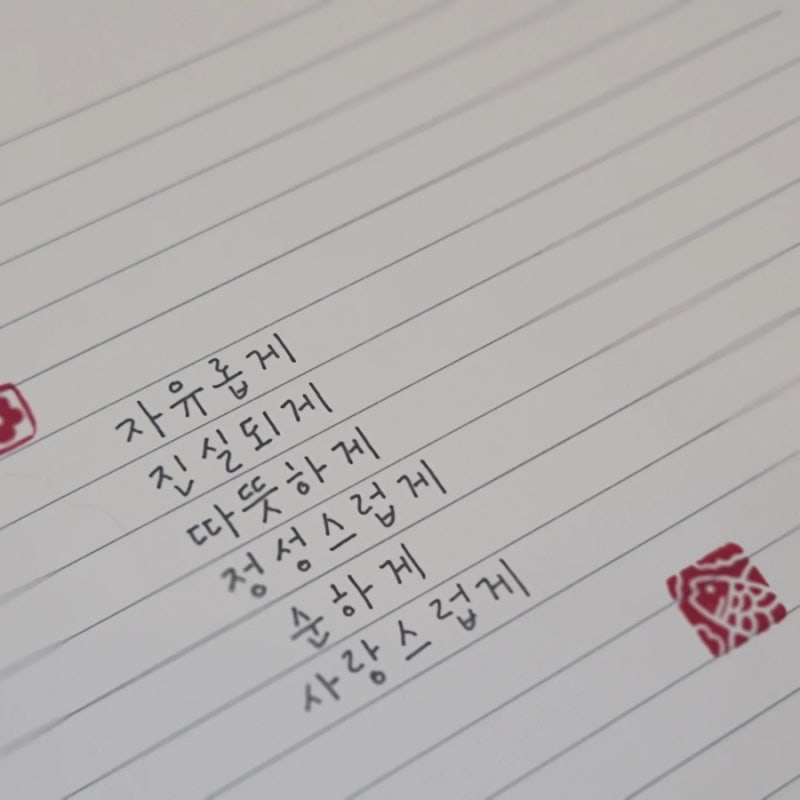 자유롭게
진실되게
따뜻하게
정성스럽게
순하게
사랑스럽게